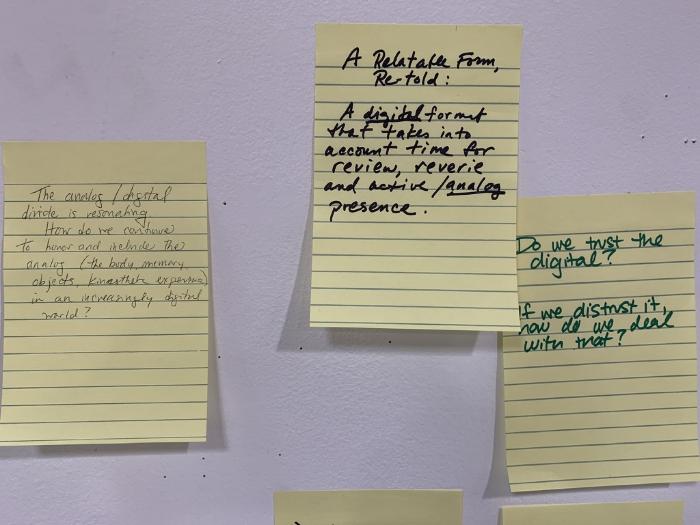 The analog / digital
divide is resonating.
How do we continue
to honor and include the
analog (the body, memory,
objects, kinesthetic expression)
in an increasingly digital
world?
A Relatable Form,
Re-told:
A digital format
that takes into
account time for
review, reverie
and active / analog
presence.
Do we trust the
digital?
If we distrust it,
how do we deal
with that?